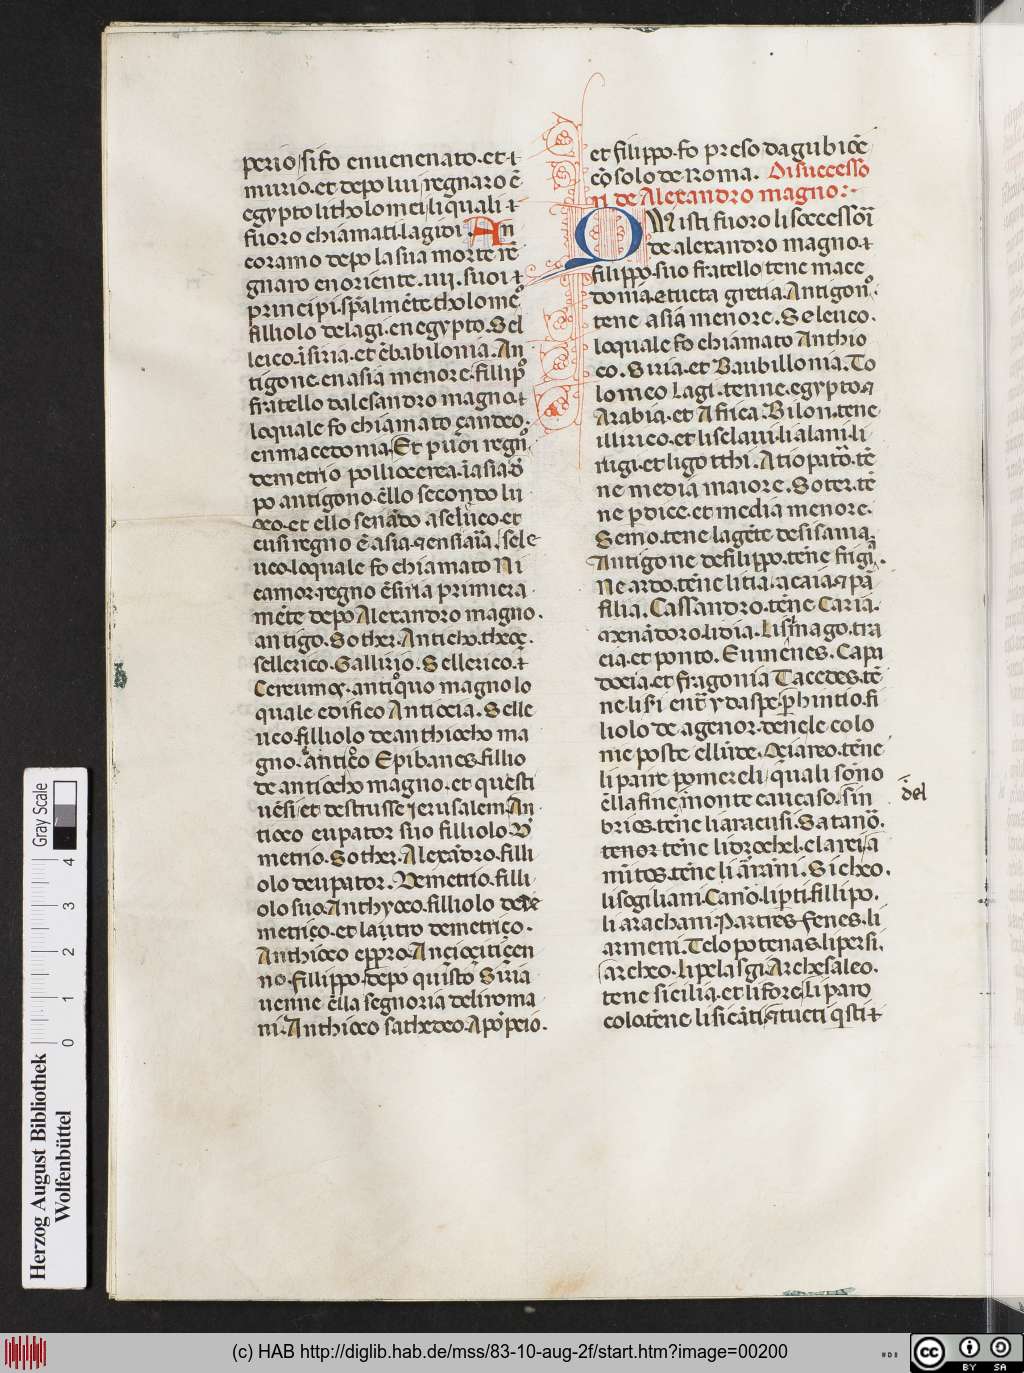 perio si fo enuenenato. et ⁊
murio. et depo lui regnaro ē
egypto li tholomei li quali ⁊
fuoro chiamati lagidi. An
coramo depo la sua morte re
gnaro en oriente .iiij. suoi ⁊
principi. spālmēte tholomeo
filliolo de lagi. en egypto. Sel
leico. ī siria. et ē babilonia. An
tigone. en asia menore. fillipo
fratello dalesandro magno. ⁊
lo quale fo chiamato candeo.
en macedonia. Et pūoi regno
demetrio
po antigono. ello secondo lu
et ello senādo a seluco. et
cusi regno ē asia. sele
uco. lo quale fo chiamato Ni
canor. regno ē siria primiera
mēte depo Alexandro magno.
antigo. Sother. Anticho. theos.
sellerico. Gallirio. Sellerico. ⁊
Cereumos. antiquo magno lo
quale edifico Antiocia. Selle
uco. filliolo de anthiocho ma
gno. antico Epibanes. fillio
de antiocho magno. et questi
uēsi et destrusse ierusalem. An
tioco eupator suo filliolo. D
metrio. Sother. Alexādro. filli
olo deupator. Demetrio. filli
olo suo. Anthyoco. filliolo de De
metrico. et lautro demetrico.
Anthioco
no. fillippo. depo quisto Siria
uenne ella segnoria deli roma
ni. Anthioco sathedeo. A pōpeio.
et filippo. fo preso da gubioē
cōsolo de Roma. Di successo
ri de Alexandro magno:.
Quisti fuoro li soccessori
de alexandro magno. ⁊
filippo. suo fratello tene mace
donia. e tucta gretia. Antigono.
tene asia menore. Seleuco.
lo quale fo chiamato Anthio
co. Siria. et Baubillonia. To
lomeo Lagi. tenne. egypto. ⁊
Arabia. et Africa. Bilon. tene
illirico. et li sclaui. li alani. li
rugi. et li gotthi. Atropato. tē
ne media maiore. Soter. tē
ne pdice. et media menore.
Semo. tene la gēte de sisania.
Antigone de filippo. tēne frigia.
Ne ardo. tēne litia. ⁊ caia. ⁊ pā
filia. Cassandro. tēne Caria.
Menādoro. lidia. Lismago. tra
cia. et ponto. Eumenes. Capa
docia. et fragonia Tacedes. tē
ne li
liolo de agenor. de nele colo
nie poste ellīde. Oeiareo. tēne
li paire pomereli. quali sono
ella fine monte caucaso. sin
del
brios. tēne li aracusi. Satano.
tenor tēne li dzochel. clareia
mītos. tēne li arrani. Sicheo.
li sogiliani. Cano. li pti. fillipo.
li arachani. Partres. fenes. li
armeni. Telopotenas. li persi.
archeo. li pelasgi. Archesaleo.
tene sicilia. et li fore. li paro
colo. tēne li siēati. ⁊ tucti qsti ⁊
Gray Scale
0 1 2 3 4
Herzog August Bibliothek
Wolfenbüttel
(c) HAB http://diglib.hab.de/mss/83-10-aug-2f/start.htm?image=00200
cc BY SA